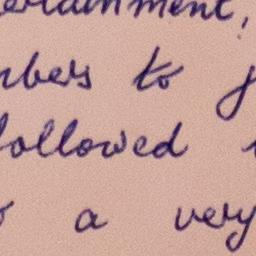 ertainment,
nbers to j
followed
a very